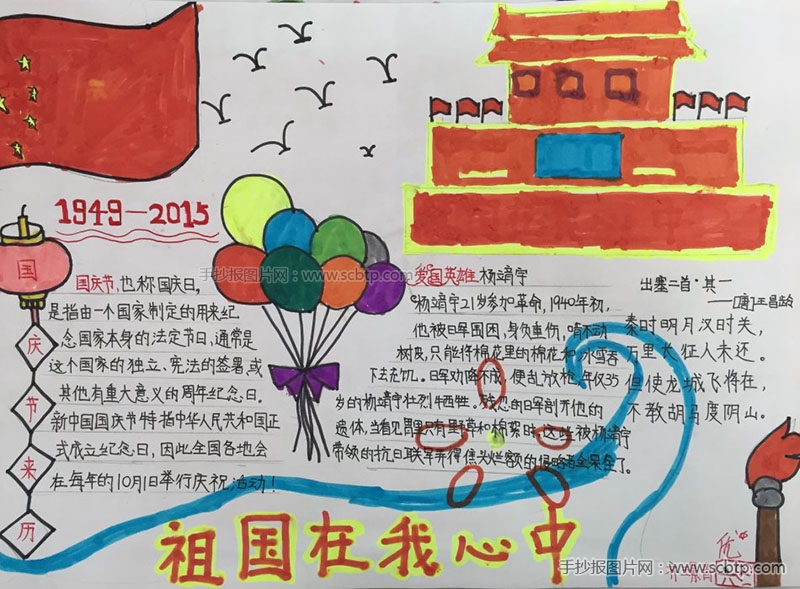 1949—2015
国
庆
节
来
历
国庆节,也称国庆日,
是指由一个国家制定的用来纪
念国家本身的法定节日,通常是
这个国家的独立、宪法的签署或
其他有重大意义的周年纪念日。
新中国国庆节特指中华人民共和国正
式成立纪念日,因此全国各地会
在每年的10月1日举行庆祝活动!
手抄报图片网:www.scbtp.com
爱国英雄 杨靖宇
杨靖宇21岁参加革命,1940年初,
他被日军围困,身负重伤,啃不动
树皮,只能将棉花里的棉花和冰雪吞
下去充饥。日军劝降不成,便乱放枪,年仅35
岁的杨靖宇壮烈牺牲。残忍的日军剖开他的
遗体,当看见胃里只有野草和棉絮时,这些被杨靖宇
带领的抗日联军弄得焦头烂额的侵略者全呆住了。
出塞二首·其一
——[唐]王昌龄
秦时明月汉时关,
万里长征人未还。
但使龙城飞将在,
不教胡马度阴山。
祖国在我心中
优
手抄报图片网:www.scbtp.com